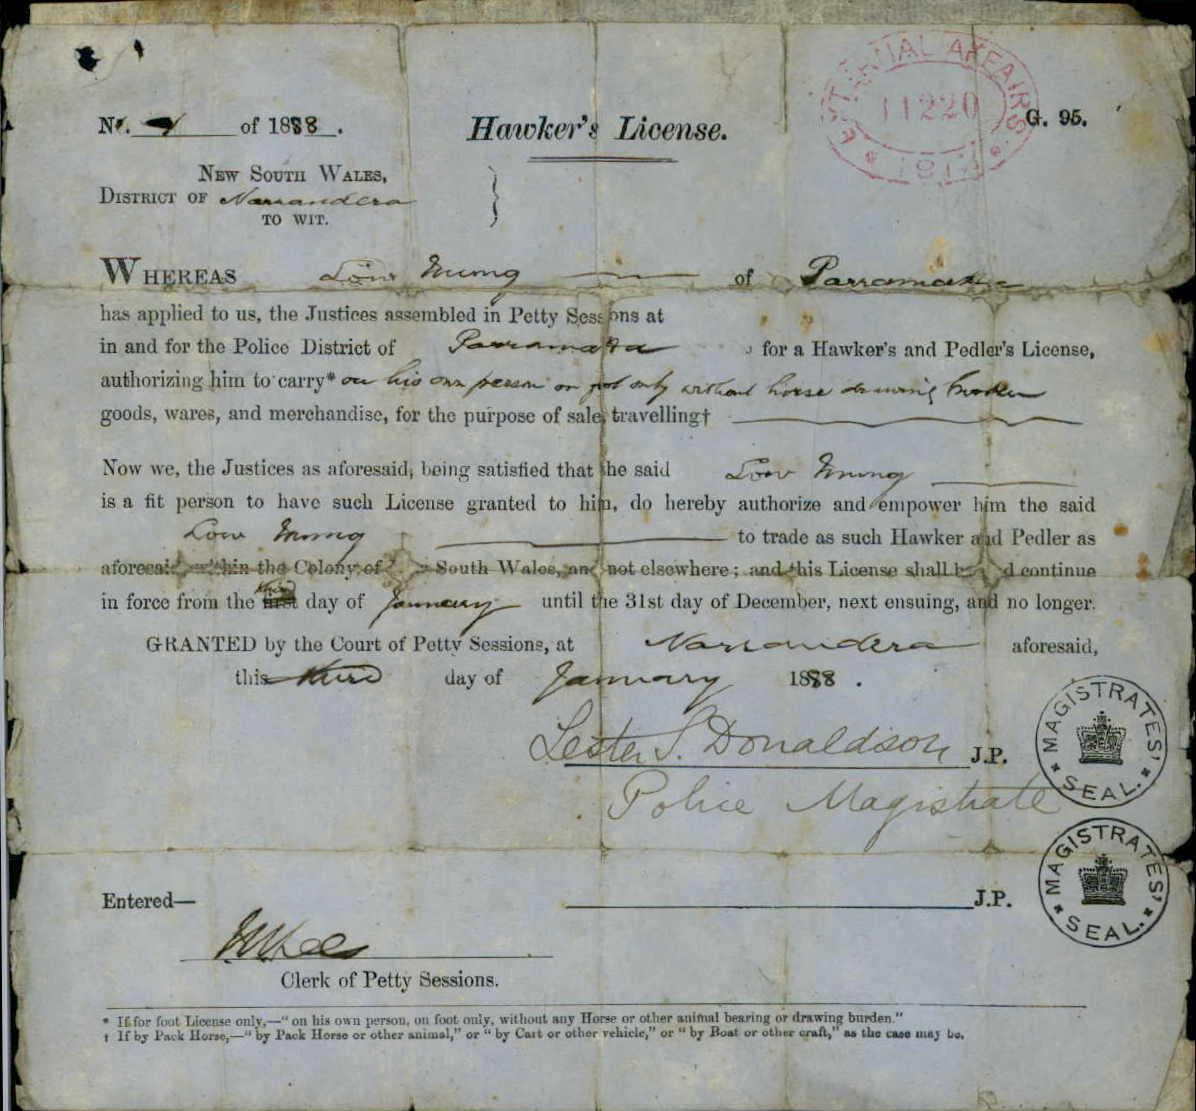 EXTERNAL AFFAIRS.
11220
No. of 1888.
Hawker's License.
G. 95.
NEW SOUTH WALES,
DISTRICT OF Narrandera
TO WIT.
WHEREAS Low Mung of
has applied to us, the Justices assembled in Petty Sessions at
in and for the Police District of for a Hawker's and Pedler's License,
authorizing him to carry* on his own person on foot only without horse drawing burden
goods, wares, and merchandise, for the purpose of sale, travelling†
Now we, the Justices as aforesaid, being satisfied that the said Low Mung
is a fit person to have such License granted to him, do hereby authorize and empower him the said
Low Mung to trade as such Hawker and Pedler as
aforesaid within the Colony of South Wales, and not elsewhere; and this License shall continue
in force from the third day of January until the 31st day of December, next ensuing, and no longer.
GRANTED by the Court of Petty Sessions, at Narrandera aforesaid,
this third day of January 1888.
Lester S. Donaldson J.P.
Police Magistrate
MAGISTRATES' SEAL.
Entered—
J.P.
MAGISTRATES' SEAL.
Clerk of Petty Sessions.
* If for foot License only,—"on his own person, on foot only, without any Horse or other animal bearing or drawing burden."
† If by Pack Horse,—"by Pack Horse or other animal," or "by Cart or other vehicle," or "by Boat or other craft," as the case may be.